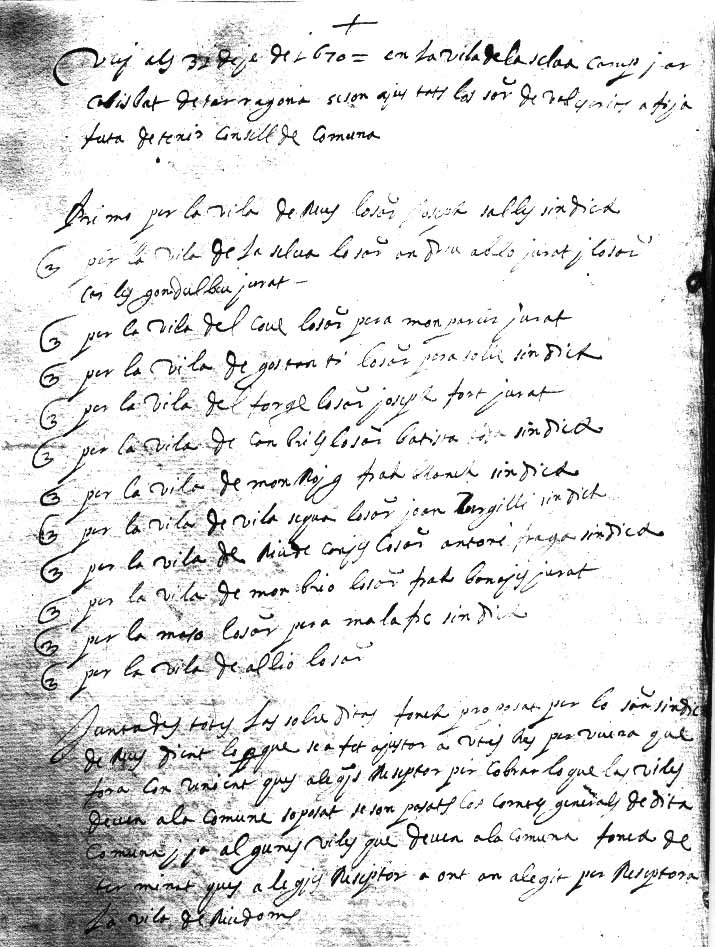 +
Vuy als 31 de je de 1670 = en la vila de la selva camp y ar
cabisbat de tarragona se son ajustats los sors de
futa de tenir Consell de Comuna
Primo per la vila de Reus lo sor joseph salles sindich
per la vila de la selva lo sor andreu jurat y lo sor
jurat
per la vila del lo sor pera monparler jurat
per la vila de gostanti lo sor pera soler sindich
per la vila del forge lo sor joseph fort jurat
per la vila de Canbrils lo sor batista sindich
per la vila de monRoyg frah blanch sindich
per la vila de vila segua lo sor joan sindich
per la vila de Riude Canyes lo sor antoni fraga sindich
per la vila de monbrio lo sor frah jurat
per la maso lo sor pera malafre sindich
per la vila de allio lo sor
Juntades totes las sobre ditas fonch proposat per lo sor sindic
de Reus dient lo que se a fet ajustar a vtes Res per veura que
fora Convinient ques alegis Reseptor per Cobrar lo que las viles
deven a la Comune soposat se son pasats los Comtes generals de dita
Comuna y ja algunes viles que deven a la Comuna fonch de
ter menat ques alegis Reseptor a ont an alegit per Reseptora
la vila de Riudoms